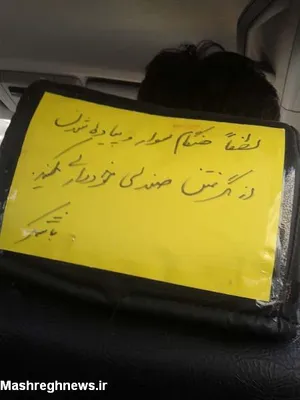 لطفاً هنگام سوار و پیاده شدن
از گرفتن صندلی خودداری کنید.
باتشکر
Mashreghnews.ir